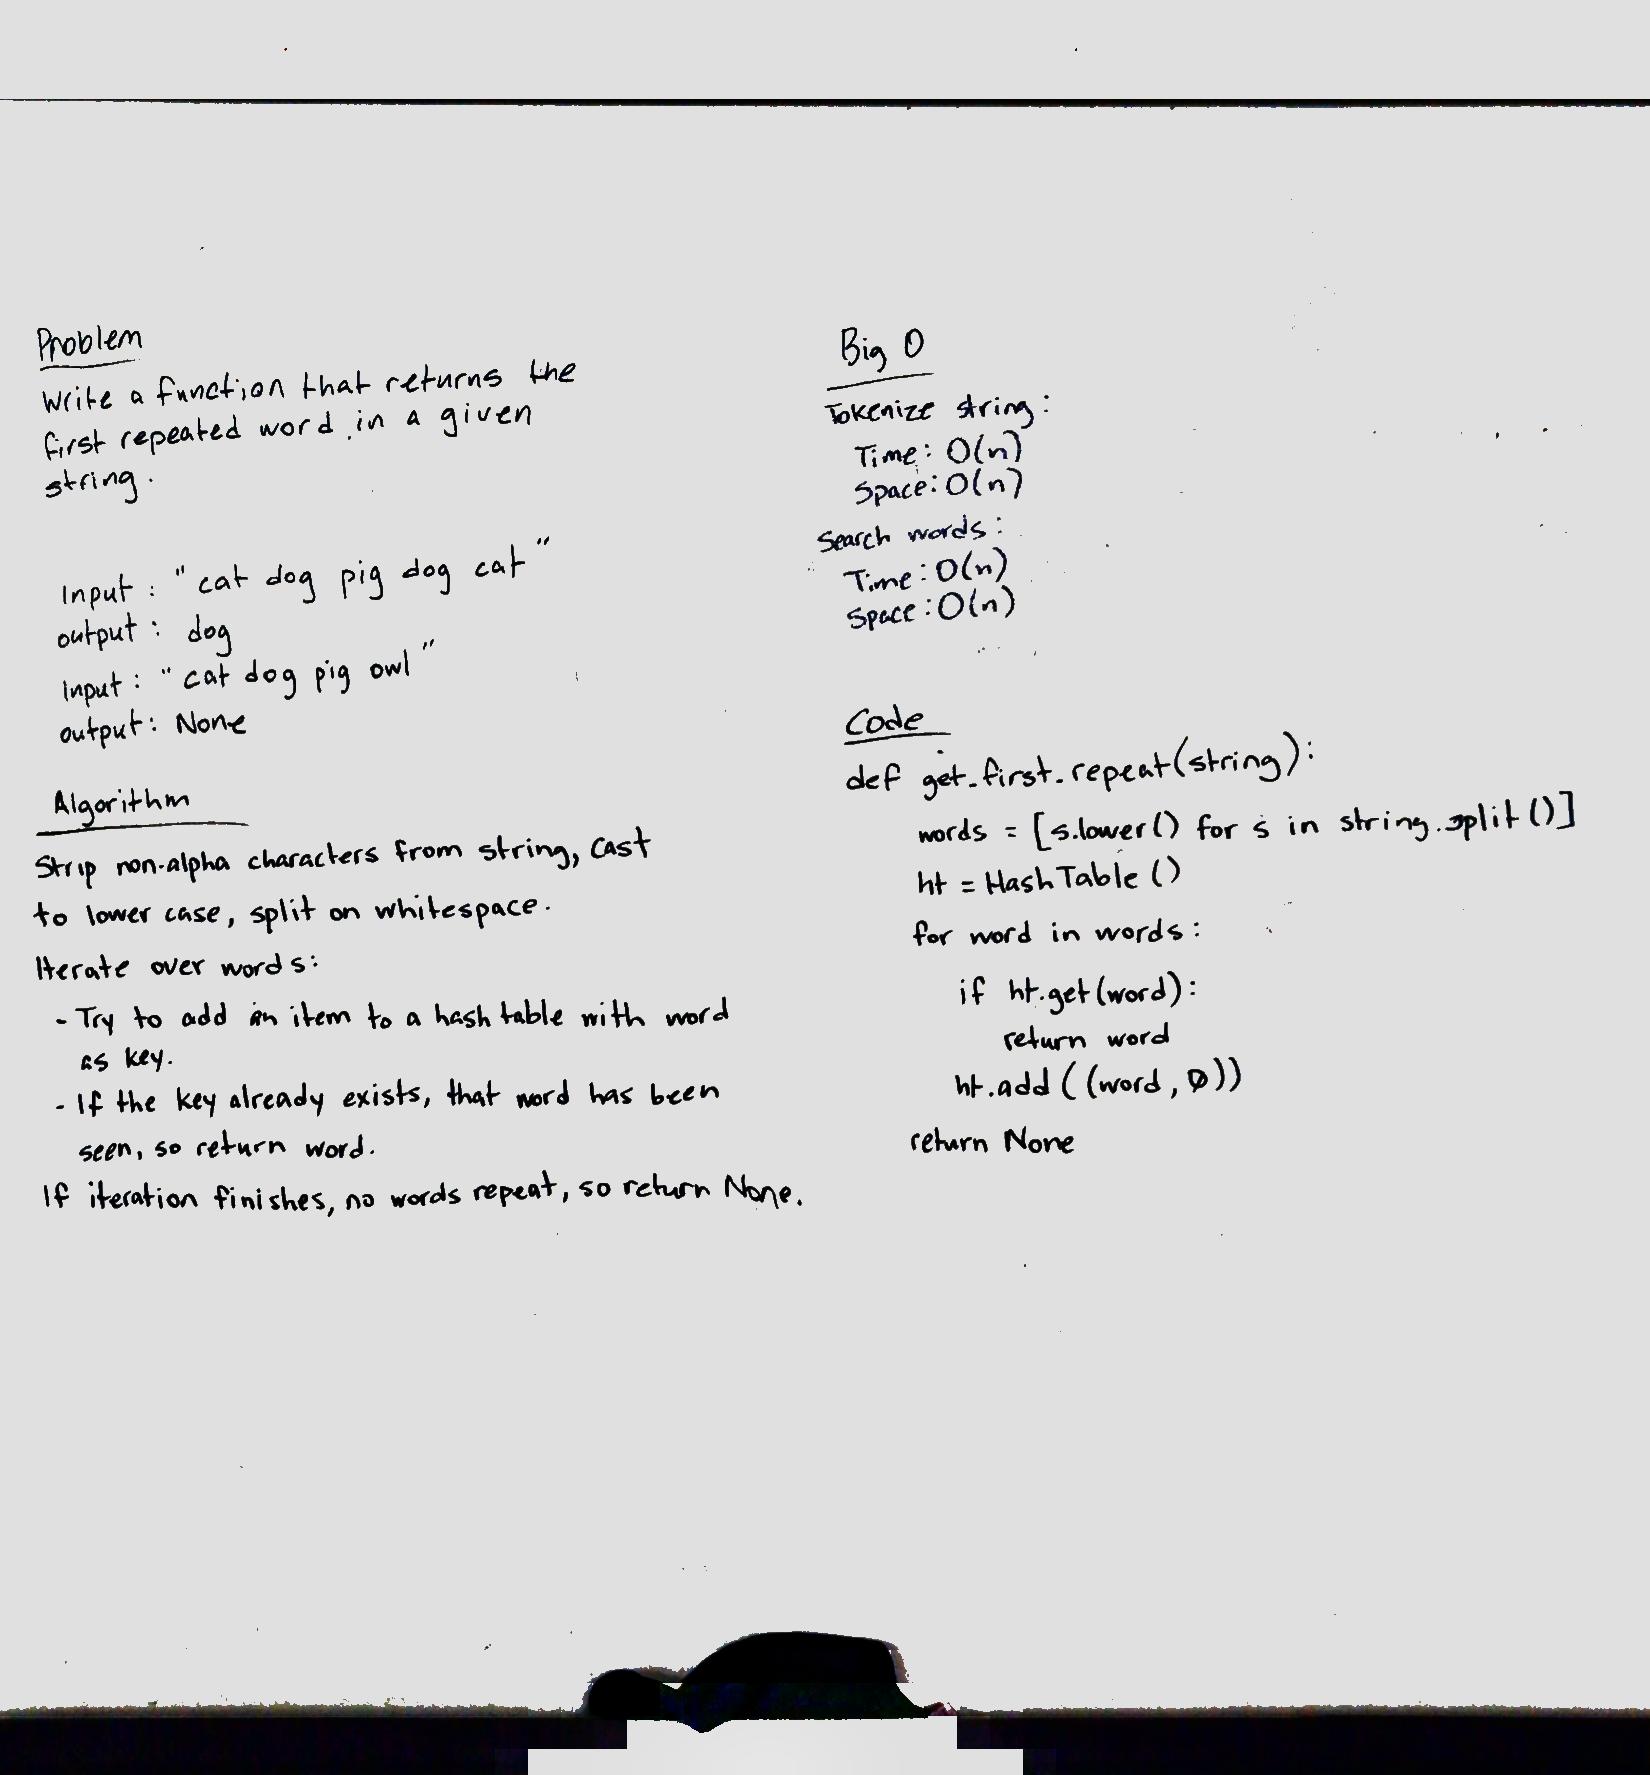 Problem
Write a function that returns the
first repeated word in a given
string.
Input : "cat dog pig dog cat"
output : dog
Input : "cat dog pig owl"
output : None
Algorithm
Strip non-alpha characters from string, cast
to lower case, split on whitespace.
Iterate over words:
- Try to add an item to a hash table with word
as key.
- If the key already exists, that word has been
seen, so return word.
If iteration finishes, no words repeat, so return None.
Big O
Tokenize string:
Time: O(n)
Space: O(n)
Search words:
Time: O(n)
Space: O(n)
Code
def get_first_repeat(string):
words = [s.lower() for s in string.split()]
ht = HashTable()
for word in words:
if ht.get(word):
return word
ht.add((word, 0))
return None